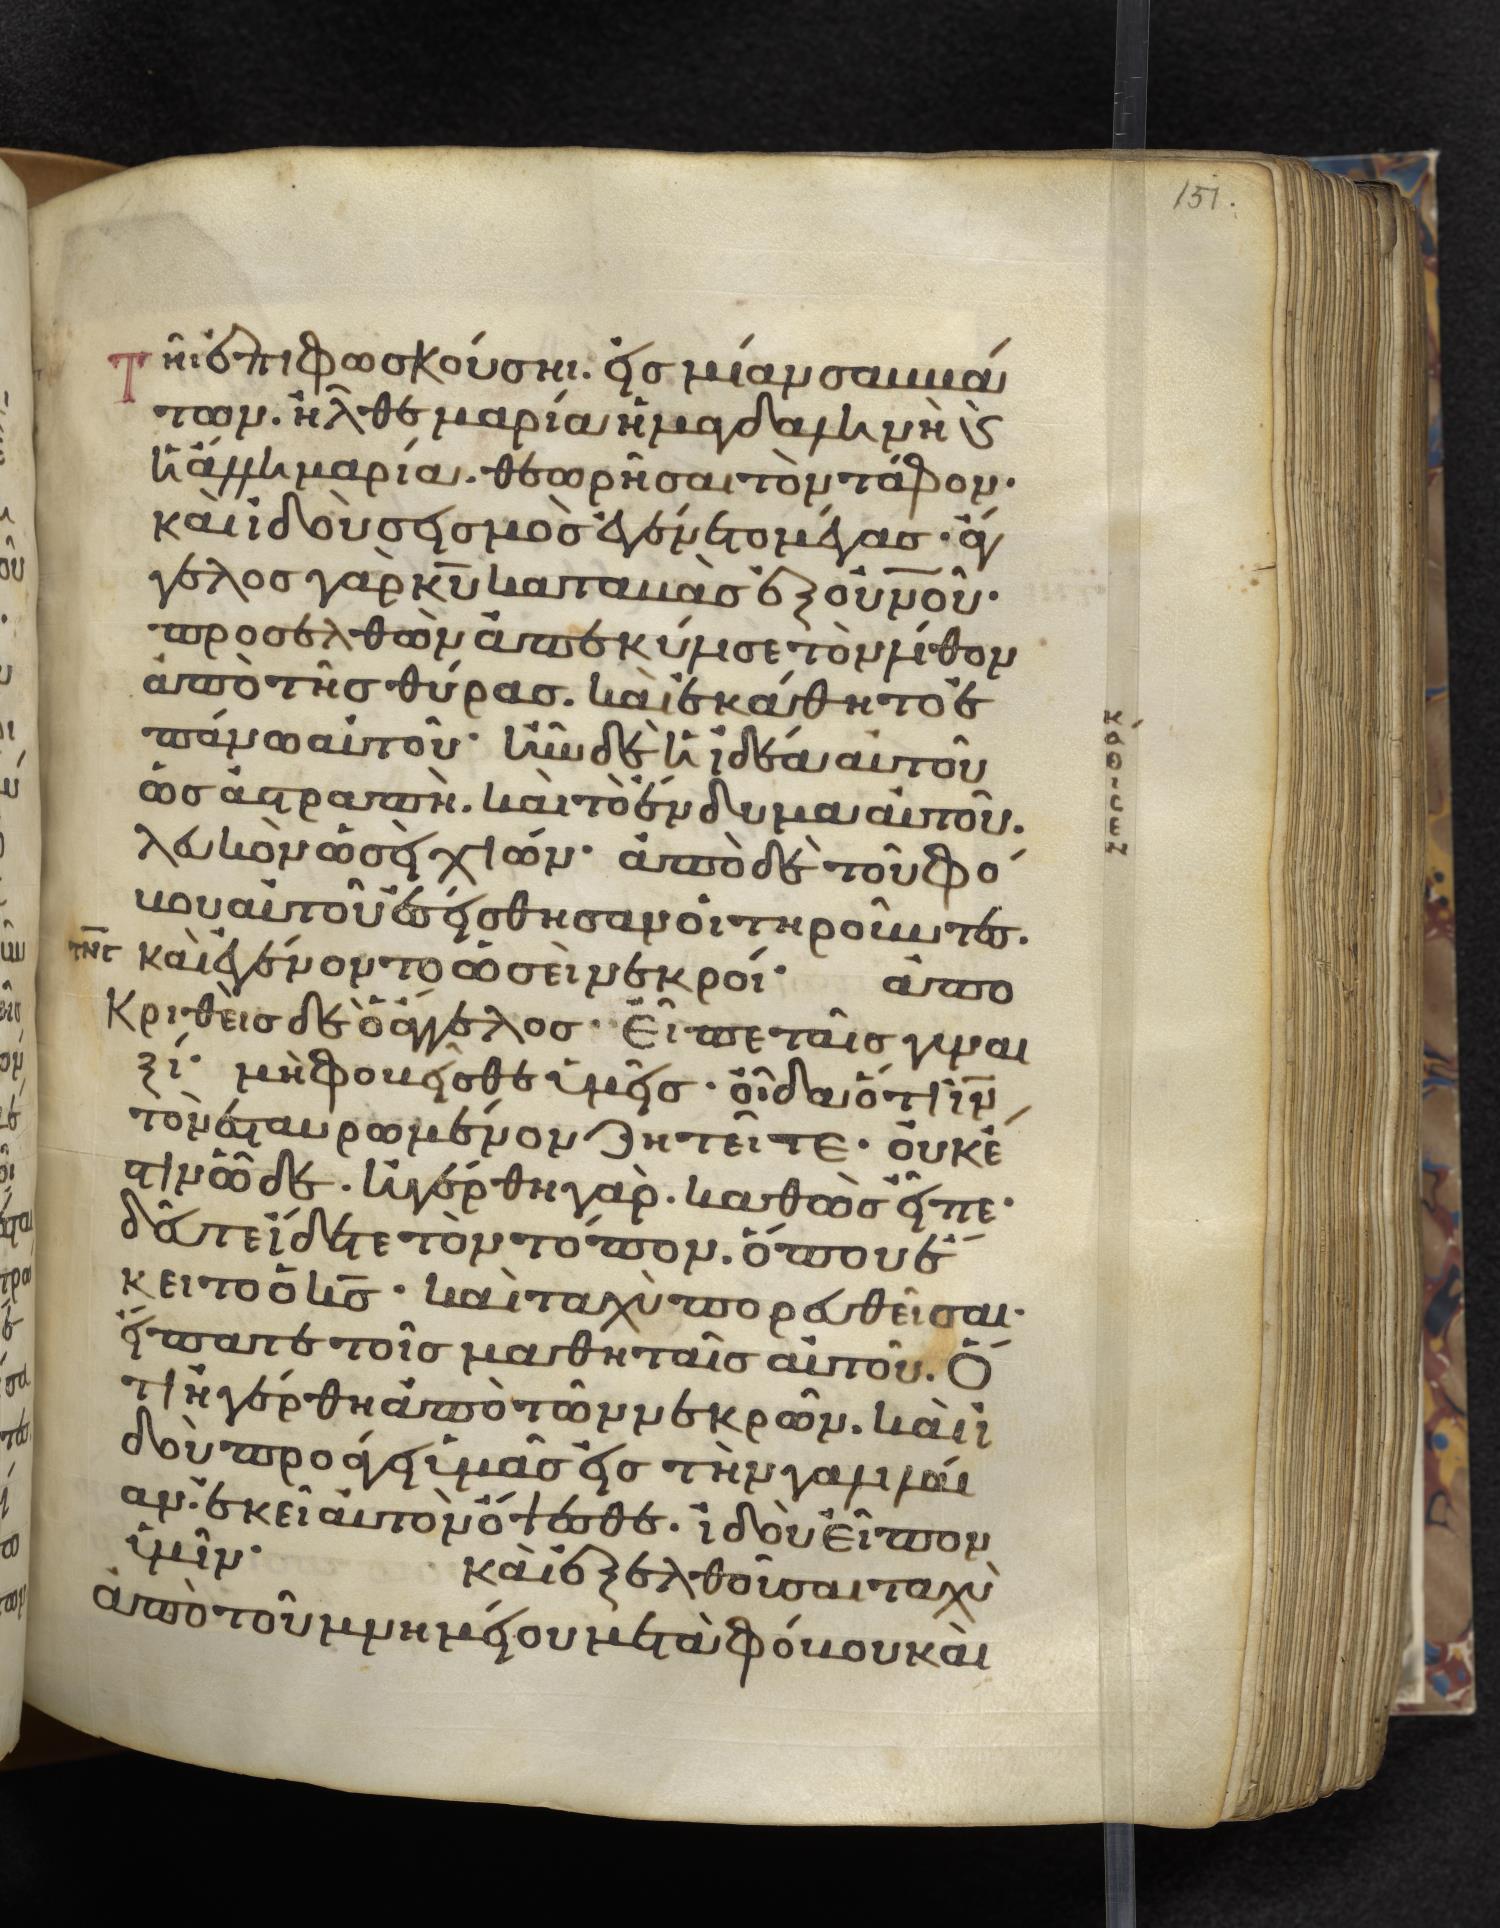 151.
τῆι ἐπιφωσκούσηι. εἰς μίαν σαββά
των. ἦλθε μαρία ἡ μαγδαληνὴ κ(αὶ)
ἡ ἄλλη μαρία. θεωρῆσαι τὸν τάφον.
καὶ ἰδοὺ σεισμὸς ἐγένετο μέγας· ἄγ
γελος γὰρ κυ καταβὰς ἐξ οὐνοῦ·
προσελθὼν ἀπεκύλισε τὸν λίθον
ἀπὸ τῆς θύρας. καὶ ἐκάθητο ἐ
πάνω αὐτοῦ· ἦν δὲ ἡ ἰδέα αὐτοῦ
ὡς ἀστραπὴ. καὶ τὸ ἔνδυμα αὐτοῦ.
λευκὸν ὡσεὶ χιών· ἀπὸ δὲ τοῦ φό
βου αὐτοῦ ἐσείσθησαν οἱ τηροῦντες.
καὶ ἐγένοντο ὡσεὶ νεκροί· ἀπο
κριθεὶς δὲ ὁ ἄγγελος· εἶπε ταῖς γυναι
ξί· μὴ φοβεῖσθε ὑμεῖς· οἶδα ὅτι ιν
τὸν ἐσταυρωμένον ζητεῖτε· οὐκ ἔ
στιν ὧδε. ἠγέρθη γὰρ. καθὼς εἶπε·
δεῦτε ἴδετε τὸν τόπον. ὅπου ἔ
κειτο ὁ κς· καὶ ταχὺ πορευθεῖσαι·
εἴπατε τοῖς μαθηταῖς αὐτοῦ. ὅ
τι ἠγέρθη ἀπὸ τῶν νεκρῶν. καὶ ἰ
δοὺ προάγει ὑμᾶς εἰς τὴν γαλιλαί
αν· ἐκεῖ αὐτὸν ὄψεσθε. ἰδοὺ εἶπον
ὑμῖν· καὶ ἐξελθοῦσαι ταχὺ
ἀπὸ τοῦ μνημείου μετὰ φόβου καὶ
κάθισεν